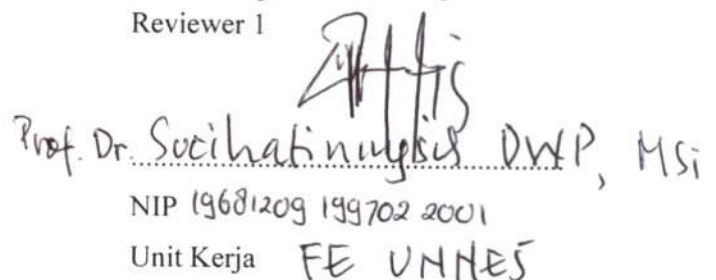 Reviewer 1
Prof. Dr. Sucihatiningsih DWP, MSi
NIP 19681209 199702 2001
Unit Kerja FE UNNES